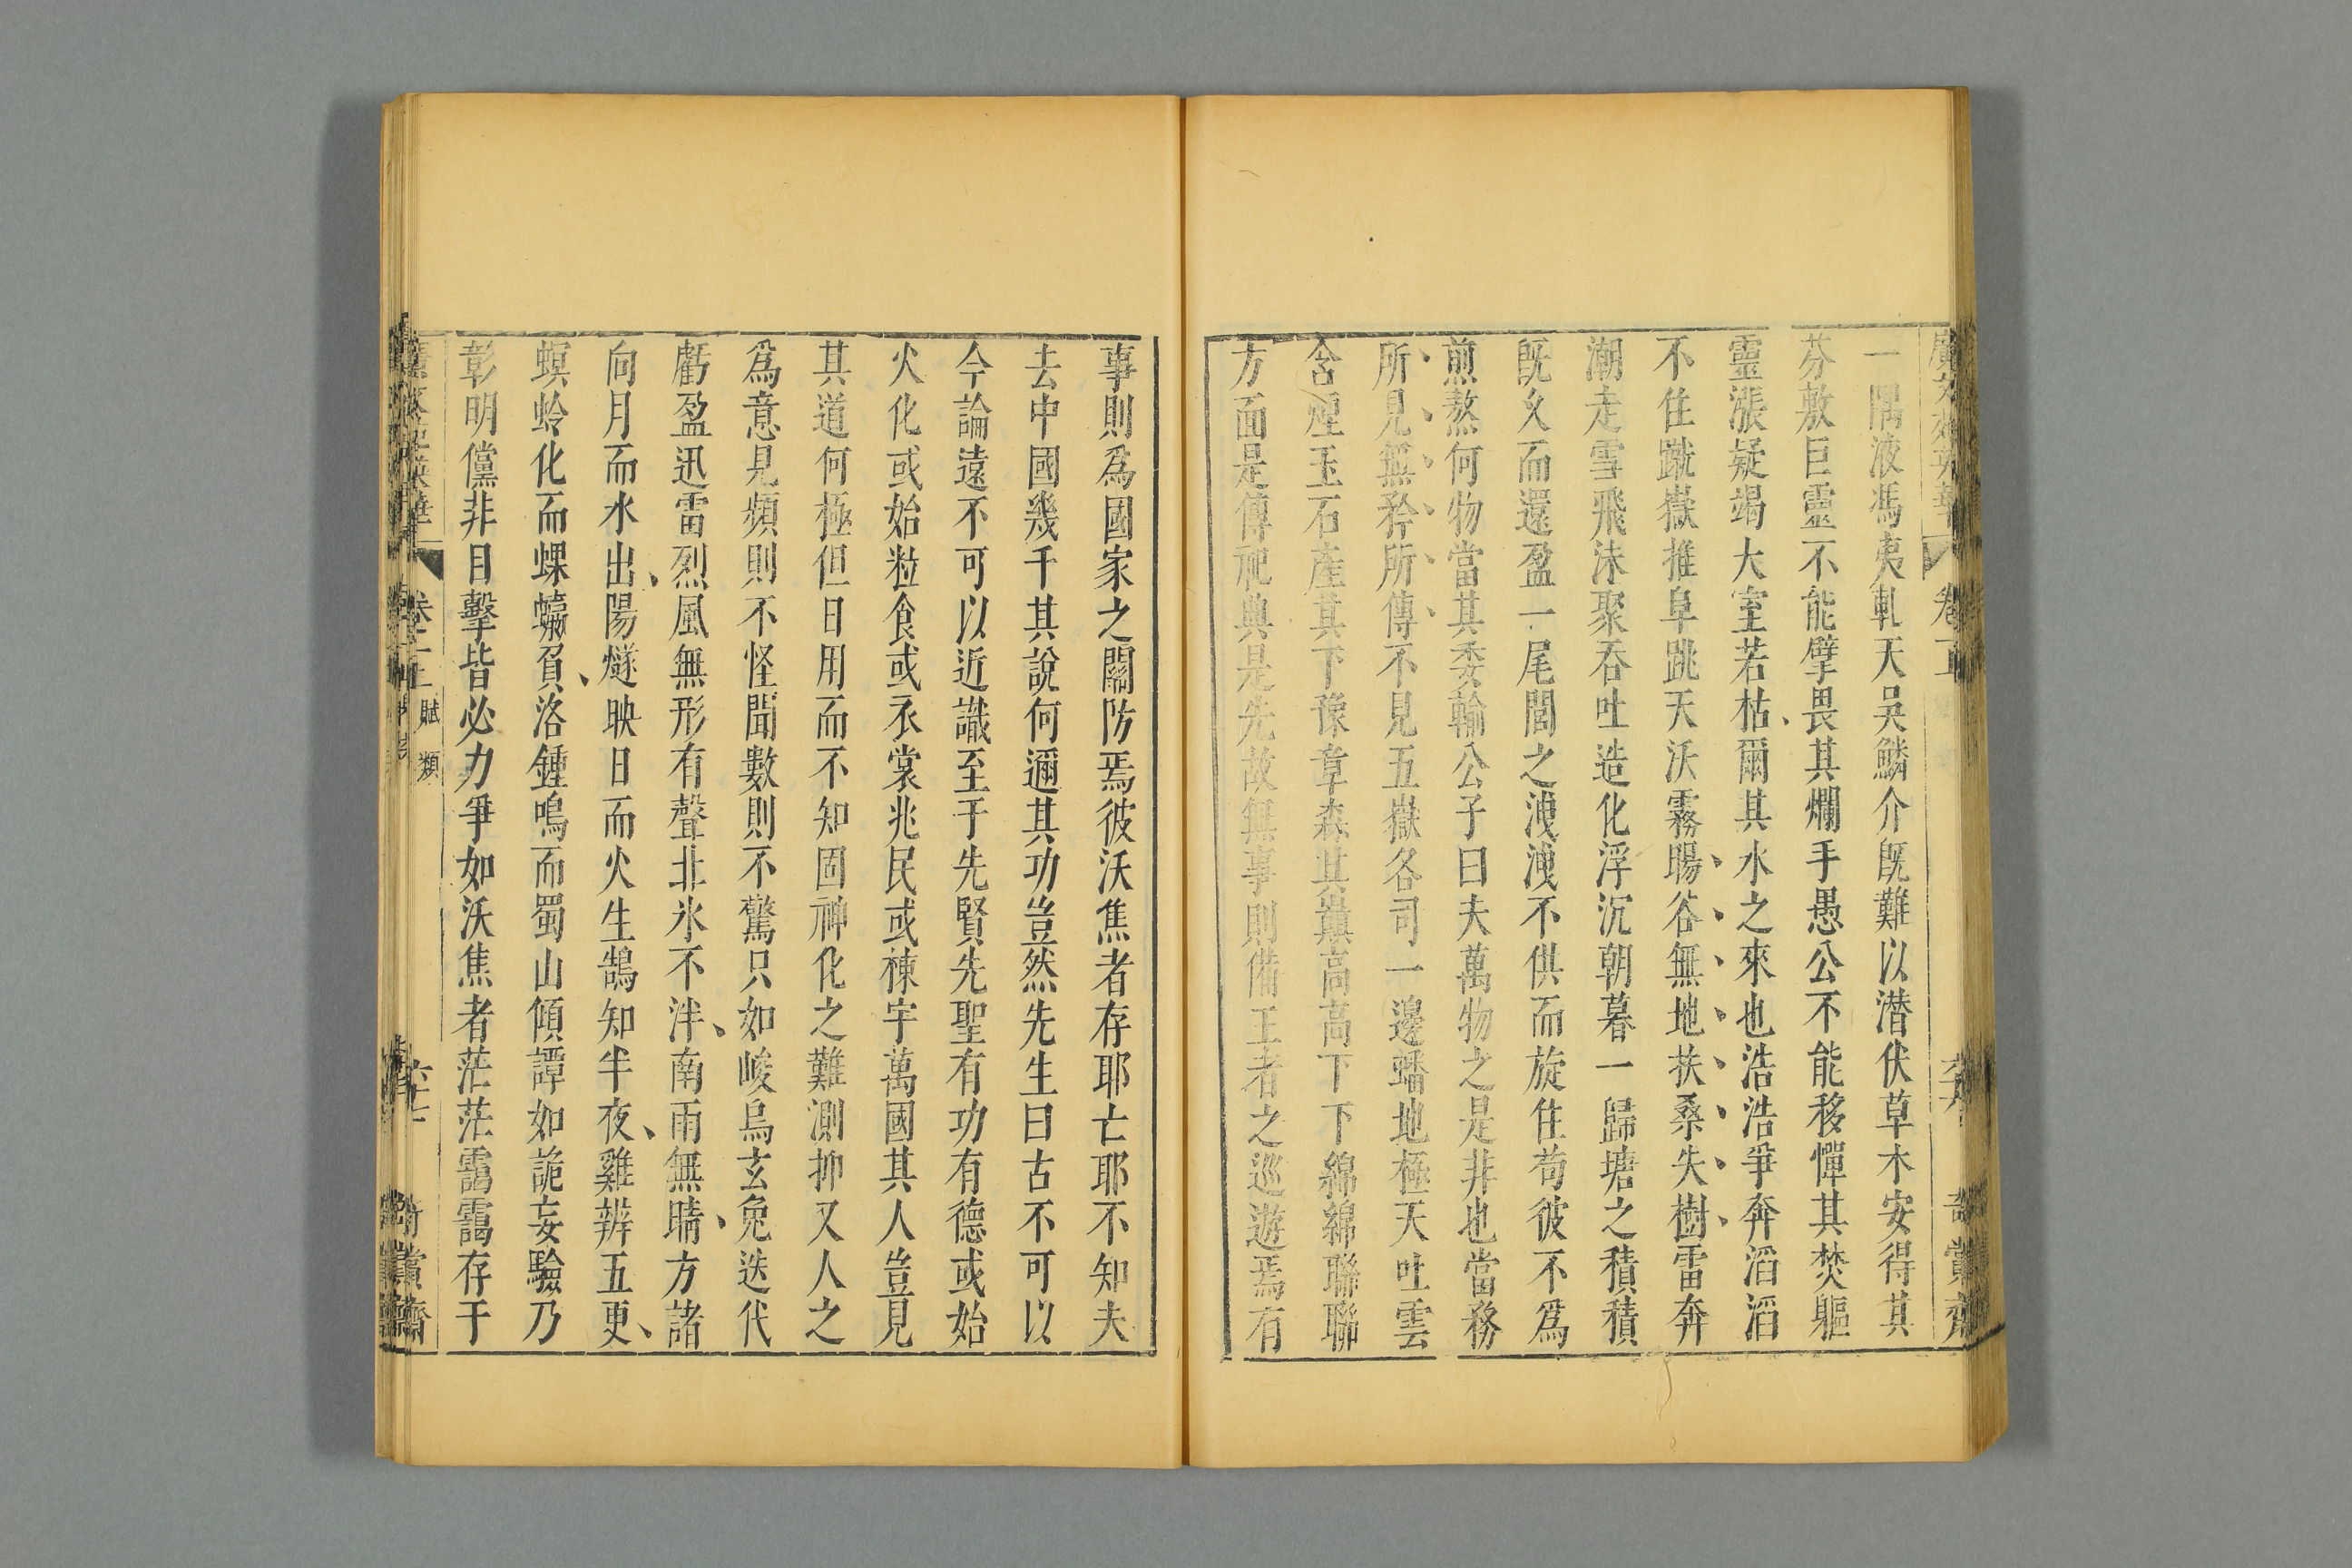 一隅液馮夷軋天吳鱗介旣難以潜伏草木安得其
芬敷巨靈不能擘畏其爛手愚公不能移憚其焚軀
靈漲疑竭大室若枯爾其水之來也浩浩爭奔滔滔
不住蹴嶽推阜跳天沃霧暘谷無地扶桑失樹雷奔
潮走雪飛沫聚吞吐造化浮沉朝暮一歸塘之積積
旣久而還盈一尾閭之洩洩不供而旋住苟彼不爲
煎熬何物當其委輸公子曰夫萬物之是非也當務
所見無矜所傳不見五嶽各司一邊蟠地極天吐雲
含煙玉石產其下豫章森其巔高高下下綿綿聯聯
方面是傳祀典是先故無事則備王者之巡遊焉有
事則爲國家之關防焉彼沃焦者存耶亡耶不知夫
去中國幾千其說何邇其功豈然先生曰古不可以
今論遠不可以近議至于先賢先聖有功有德或始
火化或始粒食或衣裳兆民或棟宇萬國其人豈見
其道何極但日用而不知固神化之難測抑又人之
爲意見頻則不怪聞數則不驚只如峻烏玄兔迭代
虧盈迅雷烈風無形有聲北氷不泮南雨無晴方諸
向月而水出陽燧映日而火生鵠知半夜雞辨五更
螟蛉化而蜾蠃負洛鍾鳴而蜀山傾譚如詭妄驗乃
彰明儻非目擊皆必力爭如沃焦者茫茫靄靄存于
卷二上 賦類 六十七